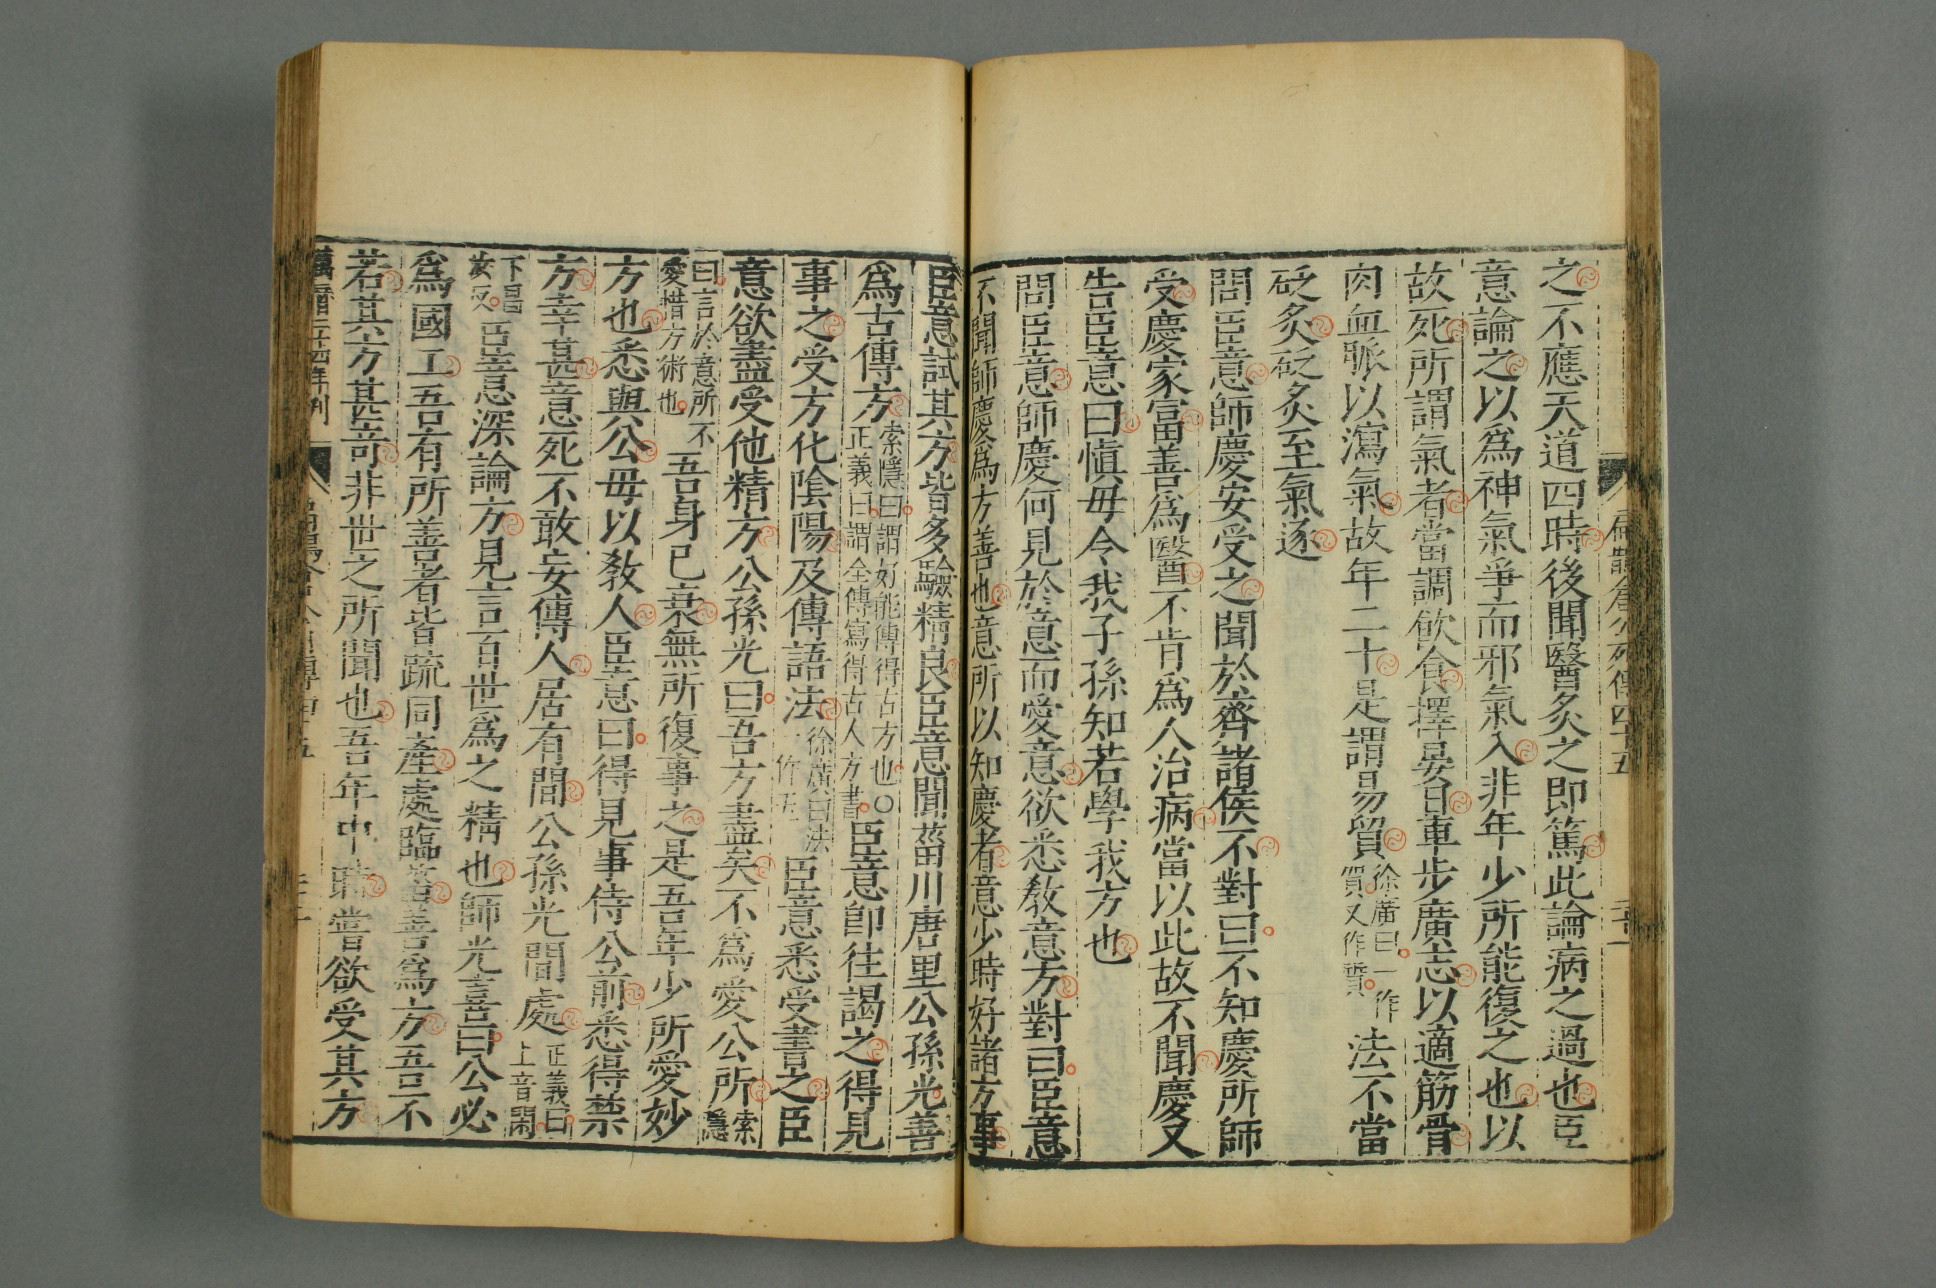 扁鵲倉公列傳四十五
之不應天道四時後聞醫灸之即篤此論病之過也臣
意論之以爲神氣爭而邪氣入非年少所能復之也以
故死所謂氣者當調飲食擇晏日車步廣志以適筋骨
肉血脈以瀉氣故年二十是謂易貿徐廣曰一作
質又作賀法不當
砭灸砭灸至氣逐
問臣意師慶安受之聞於齊諸侯不對曰不知慶所師
受慶家富善爲醫不肯爲人治病當以此故不聞慶又
告臣意曰慎毋令我子孫知若學我方也
問臣意師慶何見於意而愛意欲悉教意方對曰臣意
不聞師慶爲方善也意所以知慶者意少時好諸方事
臣意試其方皆多驗精良臣意聞菑川唐里公孫光善
爲古傳方索隱曰謂好能傳得古方也〇
正義曰謂全傳寫得古人方書臣意即往謁之得見
事之受方化陰陽及傳語法徐廣曰法
一作五臣意悉受書之臣
意欲盡受他精方公孫光曰吾方盡矣不爲愛公所索
隱
曰言於意所不
愛惜方術也吾身已衰無所復事之是吾年少所愛妙
方也悉與公毋以敎人臣意曰得見事侍公前悉得禁
方幸甚意死不敢妄傳人居有間公孫光閒處正義曰
上音閑
下昌
汝反臣意深論方見言百世爲之精也師光喜曰公必
爲國工吾有所善者皆疏同產處臨菑善爲方吾不
若其方甚奇非世之所聞也吾年中時嘗欲受其方
萬曆二十四年刊